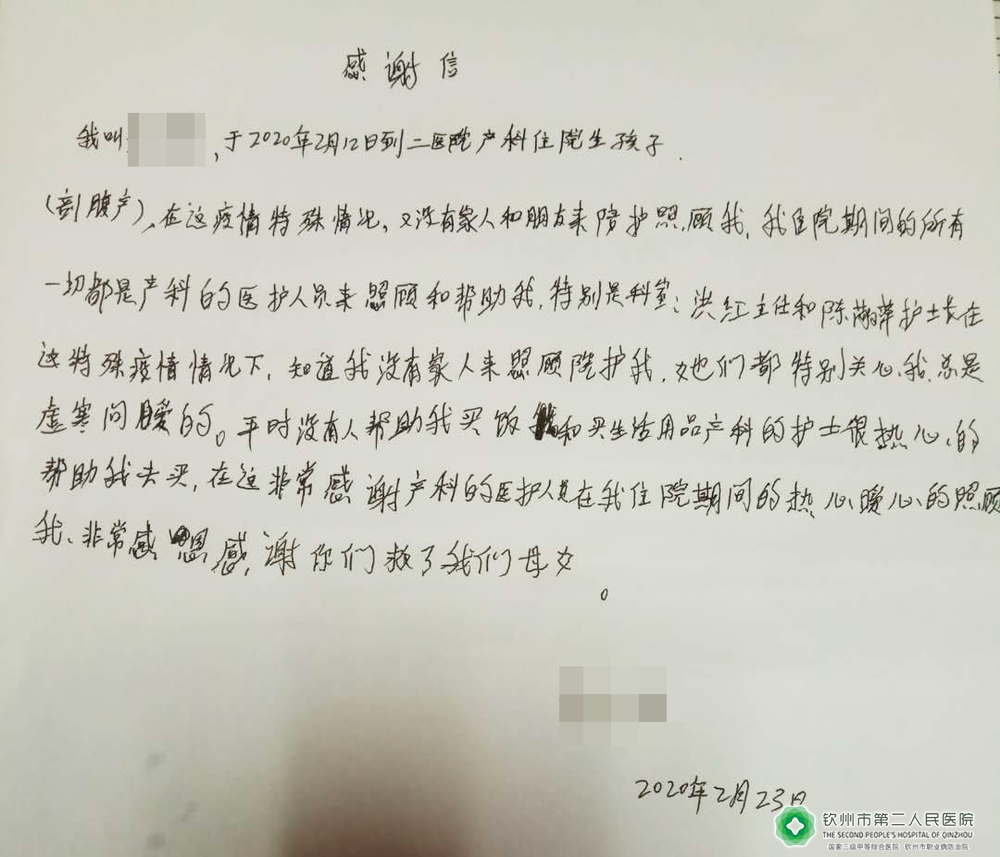 感谢信
我叫 ,于2020年2月12日到二医院产科住院生孩子.
(剖腹产),在这疫情特殊情况,又没有家人和朋友来陪护照顾我,我住院期间的所有
一切都是产科的医护人员来照顾和帮助我,特别是科室:洪红主任和陈 萍护士长在
这特殊疫情情况下,知道我没有家人来照顾陪护我,她们都特别关心我,总是
虚寒问暖的。平时没有人帮助我买饭和买生活用品产科的护士很热心的
帮助我去买,在这非常感谢产科的医护人员在我住院期间的热心暖心的照顾
我、非常感恩感谢你们救了我们母女
。
2020年2月23日
钦州市第二人民医院
THE SECOND PEOPLE'S HOSPITAL OF QINZHOU
国家三级甲等综合医院 | 钦州市职业病防治院